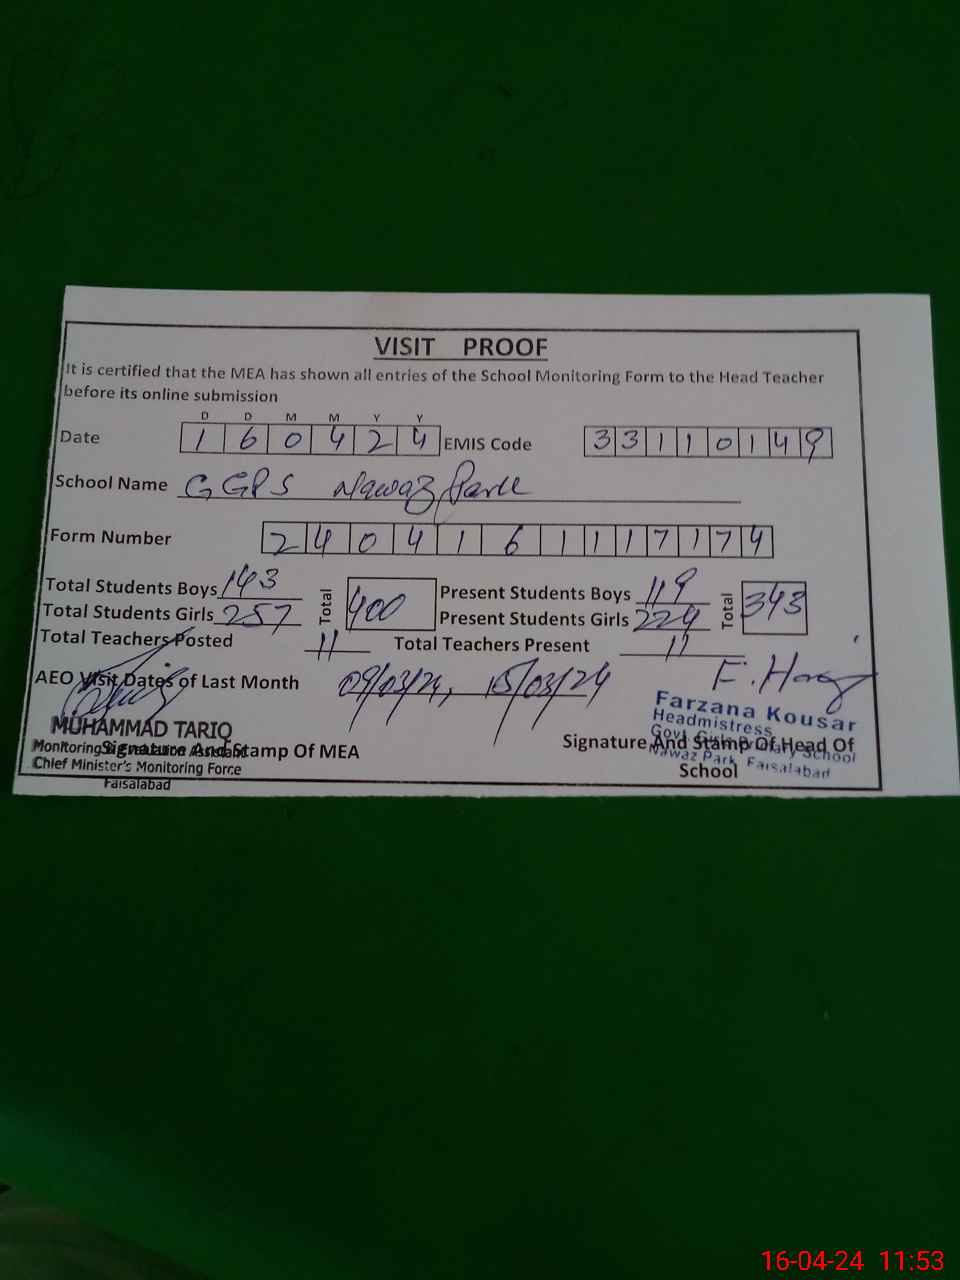 VISIT PROOF
It is certified that the MEA has shown all entries of the School Monitoring Form to the Head Teacher
before its online submission
D D M M Y Y
Date 1 6 0 4 2 4 EMIS Code 3 3 1 1 0 1 4 9
School Name GGPS Nawaz Park
Form Number 2 4 0 4 1 6 1 1 1 7 1 7 4
Total Students Boys 143 Total 400 Present Students Boys 119 Total 343
Total Students Girls 257 Present Students Girls 224
Total Teachers Posted 11 Total Teachers Present 11
AEO Visit Dates of Last Month 09/03/24, 15/03/24
Farzana Kousar
Headmistress
Govt. Girls Primary School
Nawaz Park Faisalabad
MUHAMMAD TARIQ
Monitoring & Evaluation Assistant
Chief Minister's Monitoring Force
Faisalabad
Signature And Stamp Of MEA
Signature And Stamp Of Head Of
School
16-04-24 11:53